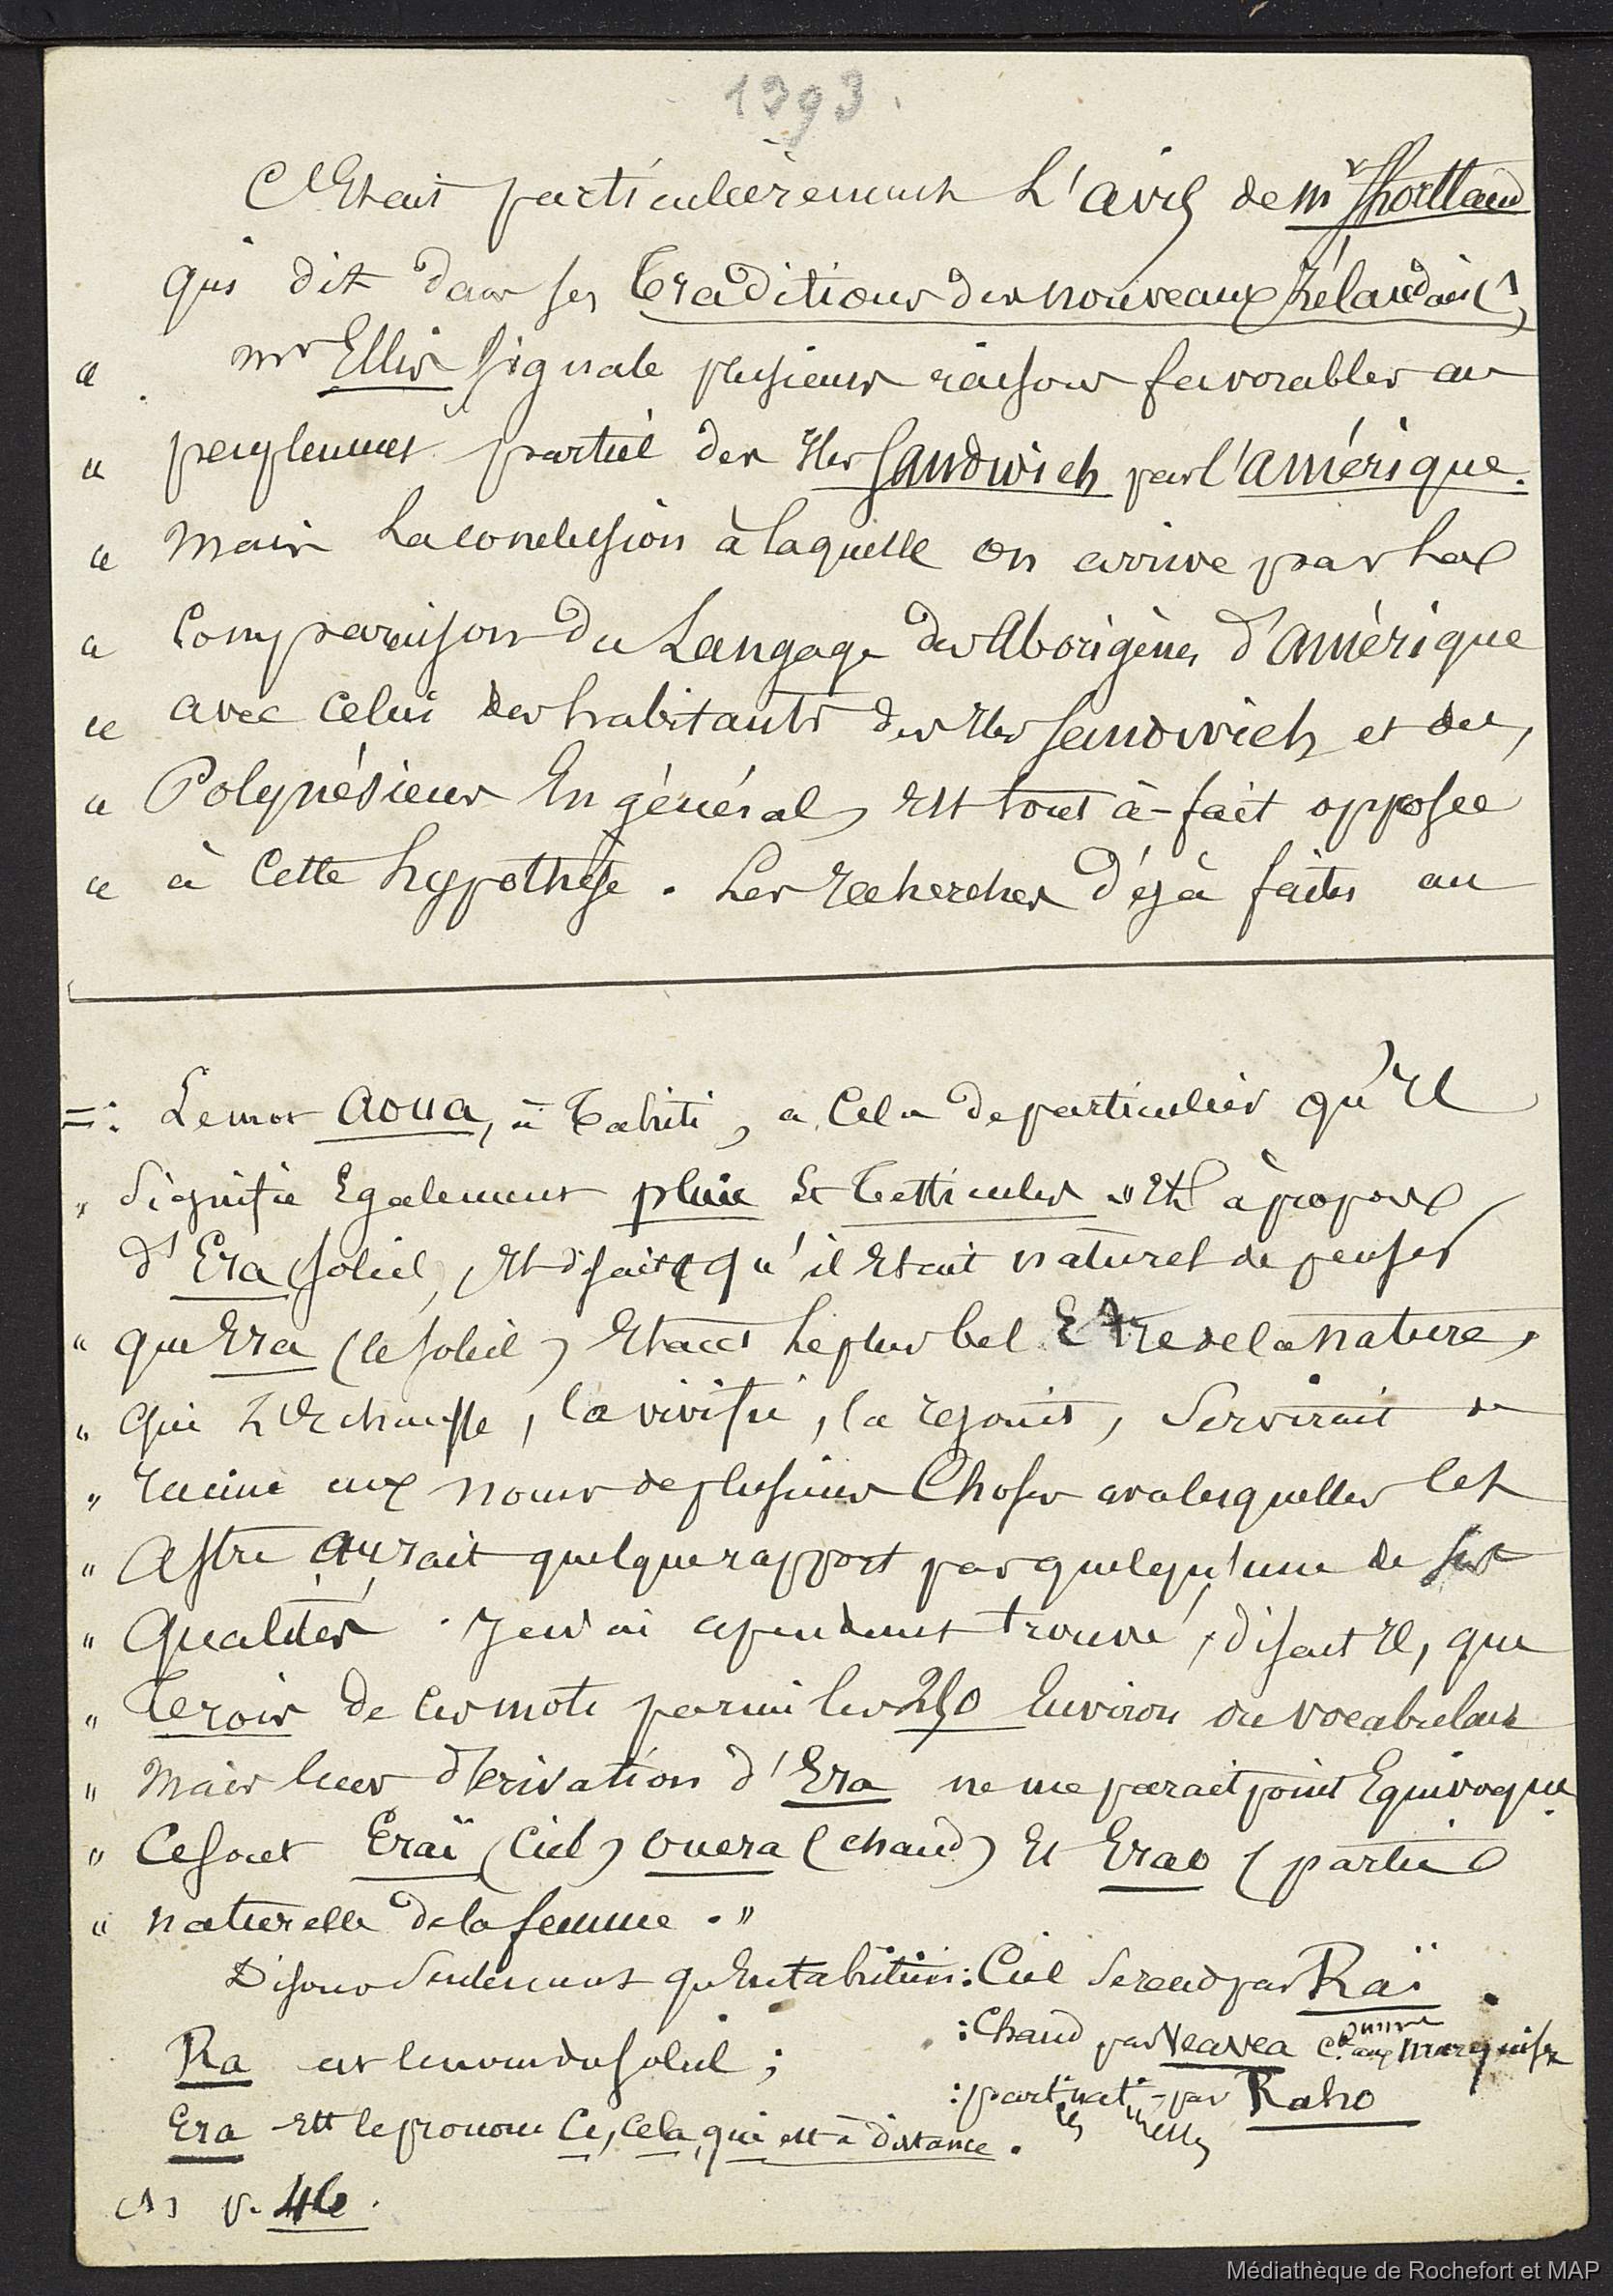 1393.
C'Etait particulièrement L'avis de mr Shortland
qui dit dans ses Traditions des nouveaux Zélandais (1)
" mr Ellis signale plusieurs raisons favorables au
" peuplement partiel des Iles Sandwich par l'amérique.
" Mais La conclusion à laquelle on arrive par la
" Comparaison du Langage des Aborigènes d'amérique
" avec celui des habitants des Iles Sandwich et des
" Polynésiens En général, Est tout à-fait opposée
" à Cette hypothèse. Les Recherches déjà faites au
=: Le mot aoua, à Tahiti, a Cela de particulier qu'Il
" Signifie Egalement pluie et Testicules " Et à propos
d'Era (soleil), Il disait qu'il Etait naturel de penser
" que Era (le soleil) Etant Le plus bel Etre de la nature,
" qui L'Echauffe, la vivifie, la rejouit, Servirait de
" racine aux noms de plusieurs Choses avec lesquelles cet
" Astre aurait quelque rapport par quelqu'une de ses
" Qualités. Je n'ai cependant trouvé, disait Il, que
" Trois de ces mots parmi les 250 Environ du vocabulaire
" Mais leur dérivation d'Era ne me parait point Equivoque
" Ce sont Eraï (Ciel) ouera (chaud) Et Erao (partie
" naturelle de la femme. "
Disons Seulement qu'En tahitien: Ciel Se rend par Raï.
: Chaud par veavea Comme aux Marquises
Ra est le nom du soleil;
: parties naturelles par Raho
Era Est le pronom Ce, cela, qui est à distance.
(1) p. 46.
Médiathèque de Rochefort et MAP